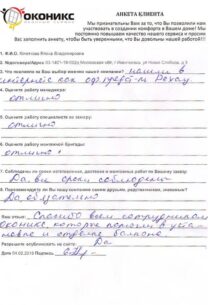 ОКОНИКС
АНКЕТА КЛИЕНТА
Мы признательны Вам за то, что Вы позволили нам
участвовать в создании комфорта в Вашем доме! Мы
постоянно повышаем качество нашего сервиса и просим
Вас заполнить анкету, чтобы быть уверенными, что Вы довольны нашей работой!!!
1. Ф.И.О. Елена Владимировна
2. Московская обл., г Ивантеевка, ул Новая Слобода, д 3
3. Что повлияло на Ваш выбор именно нашей компании? нашли в
интернете как
4. Оцените работу менеджера:
отлично
5. Оцените работу специалиста по замеру:
отлично
6. Оцените работу монтажной бригады:
отлично!
7. Соблюдены ли сроки изготовления, доставки и монтажа работ по Вашему заказу
Да, все сроки соблюдены
8. Порекомендуете ли Вы нашу компанию своим друзьям, родственникам, знакомым?
Да обязательно
Спасибо всем сотрудникам
оконикс, которые помогли в уста-
новке и отделке балкона
Разрешите опубликовать на сайте: Да
Дата 04.02.2019 Подпись